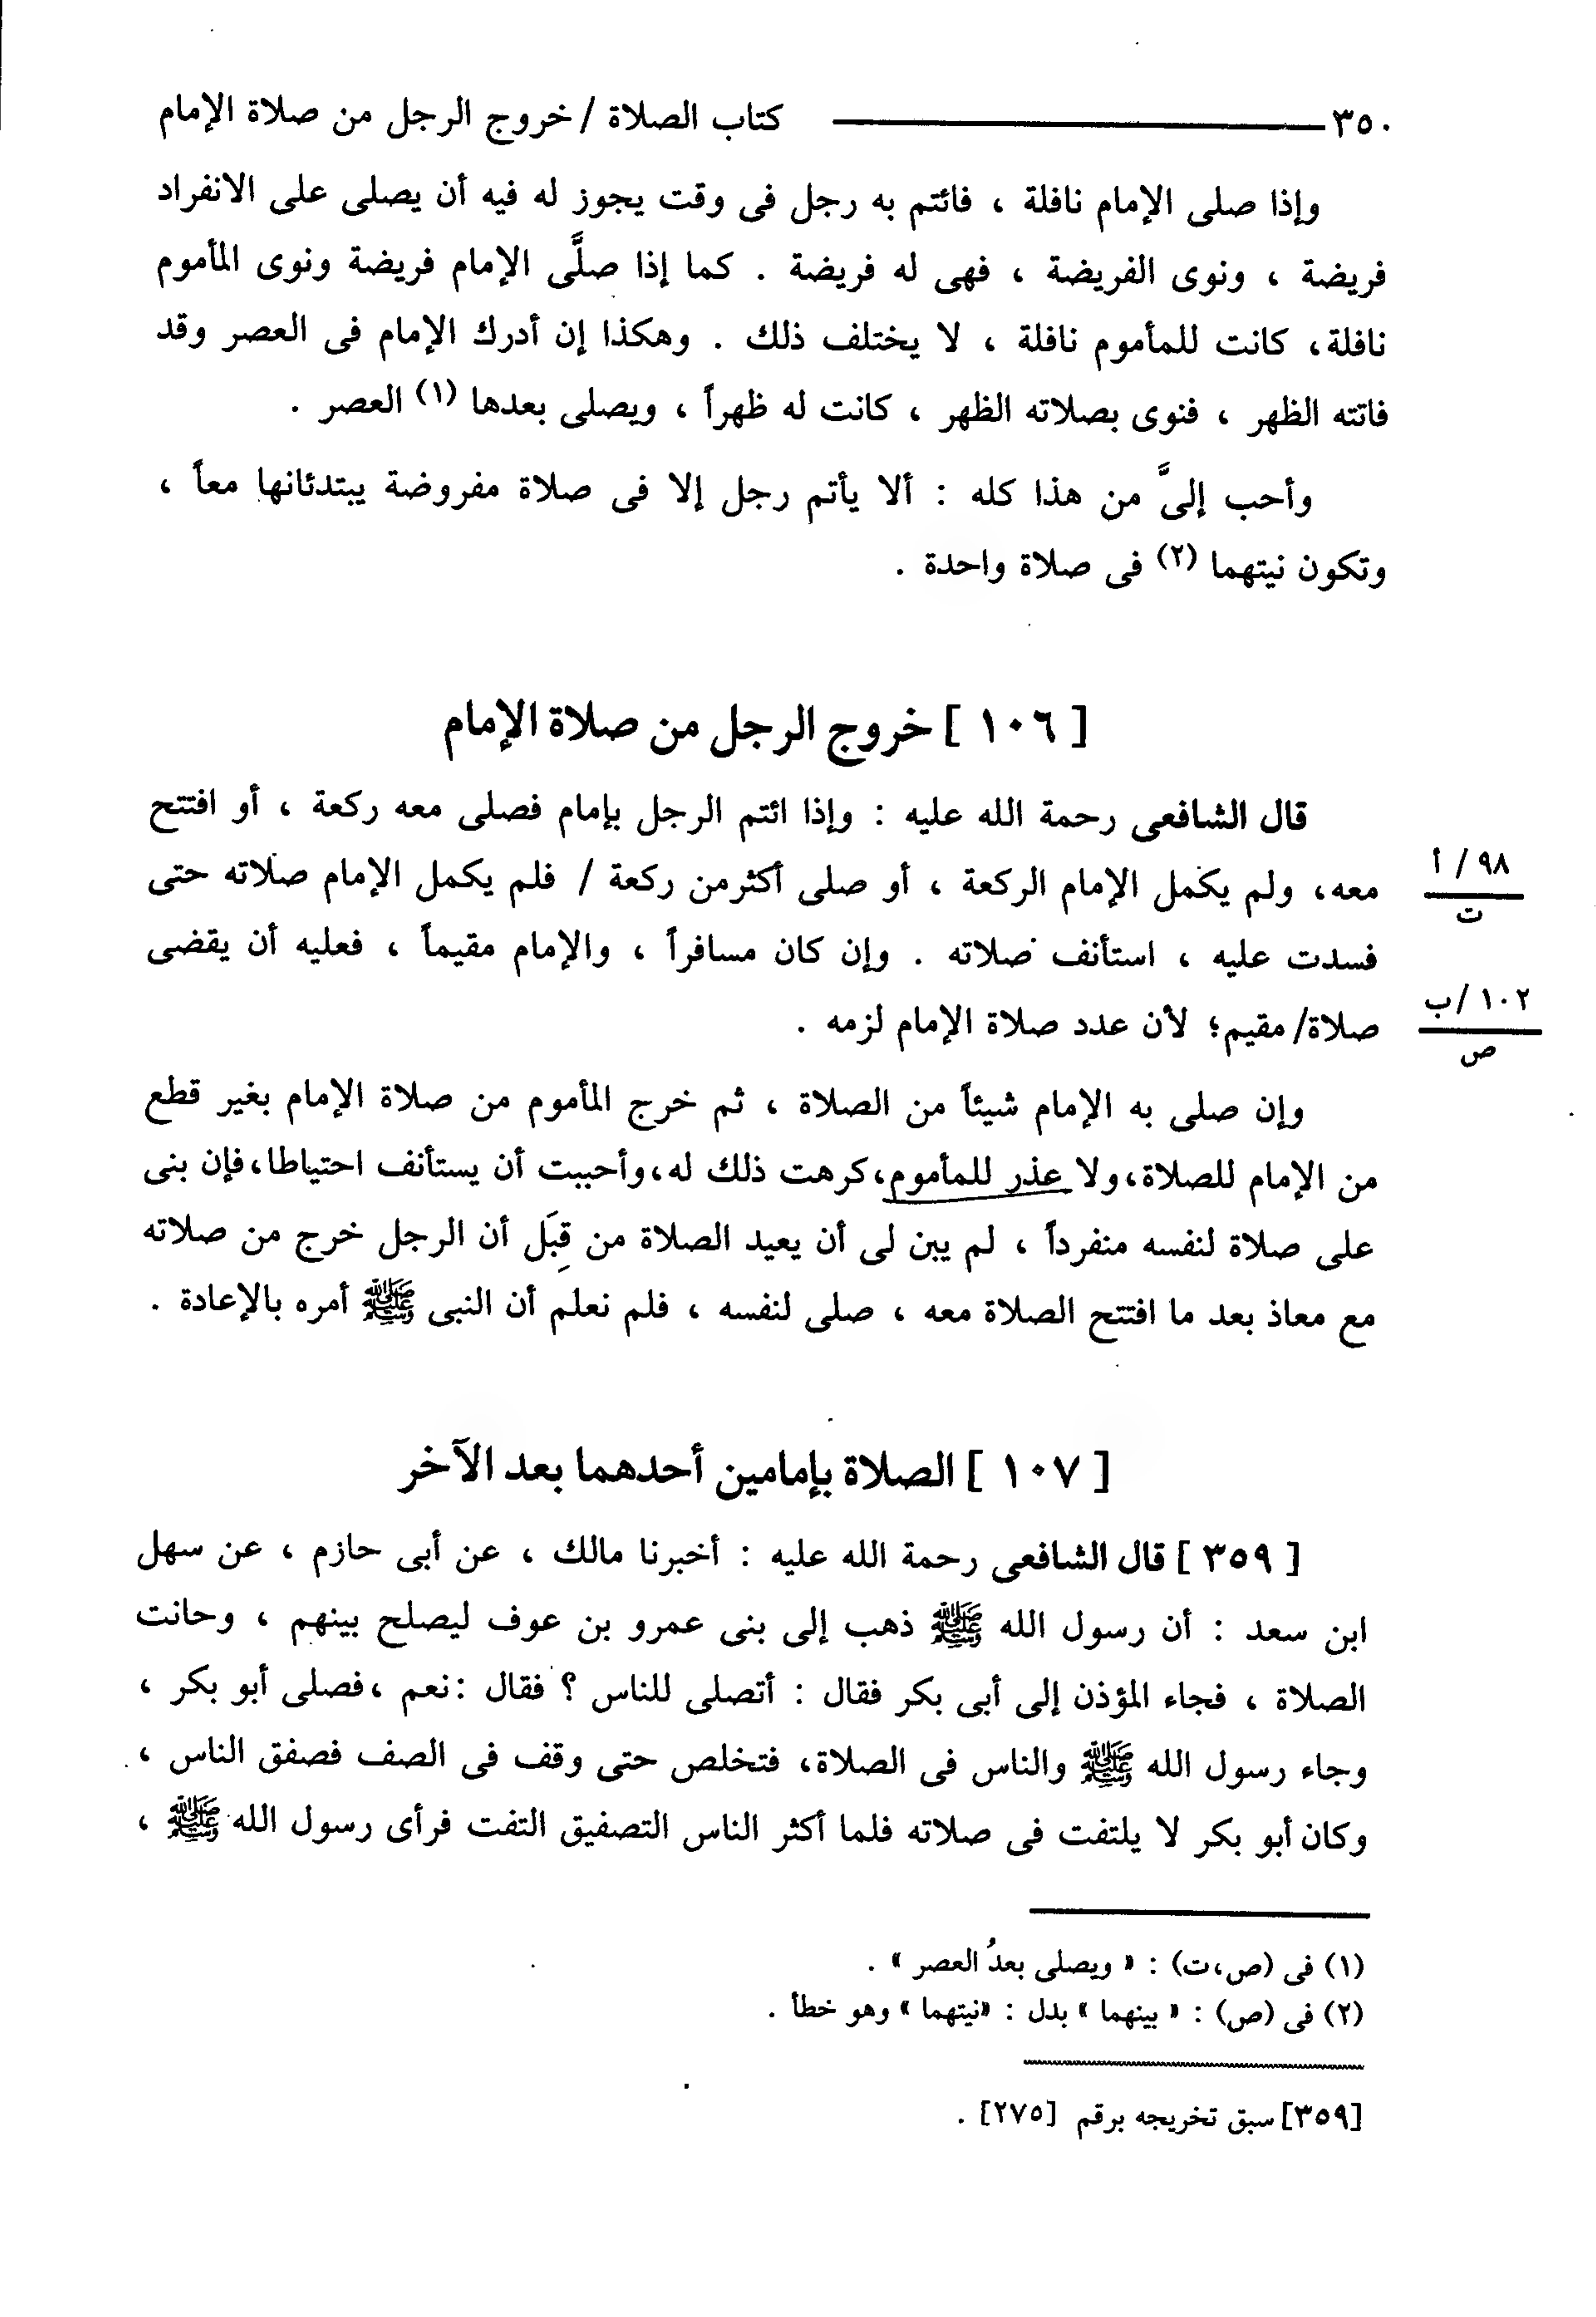 ٣٥٠ كتاب الصلاة / خروج الرجل من صلاة الإمام
وإذا صلى الإمام نافلة ، فائتم به رجل فى وقت يجوز له فيه أن يصلى على الانفراد
فريضة ، ونوى الفريضة ، فهى له فريضة . كما إذا صلَّى الإمام فريضة ونوى المأموم
نافلة، كانت للمأموم نافلة ، لا يختلف ذلك . وهكذا إن أدرك الإمام فى العصر وقد
فاتته الظهر ، فنوى بصلاته الظهر ، كانت له ظهراً ، ويصلى بعدها (١) العصر .
وأحب إلىَّ من هذا كله : ألا يأتم رجل إلا فى صلاة مفروضة يبتدئانها معاً ،
وتكون نيتهما (٢) فى صلاة واحدة .
[ ١٠٦ ] خروج الرجل من صلاة الإمام
قال الشافعى رحمة الله عليه : وإذا ائتم الرجل بإمام فصلى معه ركعة ، أو افتتح
معه، ولم يكمل الإمام الركعة ، أو صلى أكثرمن ركعة / فلم يكمل الإمام صلاته حتى
٩٨ / أ
ت
فسدت عليه ، استأنف صلاته . وإن كان مسافراً ، والإمام مقيماً ، فعليه أن يقضى
صلاة/ مقيم؛ لأن عدد صلاة الإمام لزمه .
١٠٢ /ب
ص
وإن صلى به الإمام شيئاً من الصلاة ، ثم خرج المأموم من صلاة الإمام بغير قطع
من الإمام للصلاة،ولا عذر للمأموم،كرهت ذلك له،وأحببت أن يستأنف احتياطا،فإن بنى
على صلاة لنفسه منفرداً ، لم يبن لى أن يعيد الصلاة من قِبَل أن الرجل خرج من صلاته
مع معاذ بعد ما افتتح الصلاة معه ، صلى لنفسه ، فلم نعلم أن النبى ﷺ أمره بالإعادة .
[ ١٠٧ ] الصلاة بإمامين أحدهما بعد الآخر
[ ٣٥٩ ] قال الشافعى رحمة الله عليه : أخبرنا مالك ، عن أبى حازم ، عن سهل
ابن سعد : أن رسول الله ﷺ ذهب إلى بنى عمرو بن عوف ليصلح بينهم ، وحانت
الصلاة ، فجاء المؤذن إلى أبى بكر فقال : أتصلى للناس ؟ فقال :نعم ،فصلى أبو بكر ،
وجاء رسول الله ﷺ والناس فى الصلاة، فتخلص حتى وقف فى الصف فصفق الناس ،
وكان أبو بكر لا يلتفت فى صلاته فلما أكثر الناس التصفيق التفت فرأى رسول الله ﷺ ،
(١) فى (ص،ت) : « ويصلى بعدُ العصر » .
(٢) فى (ص) : « بينهما » بدل : «نيتهما » وهو خطأ .
[٣٥٩] سبق تخريجه برقم [٢٧٥] .